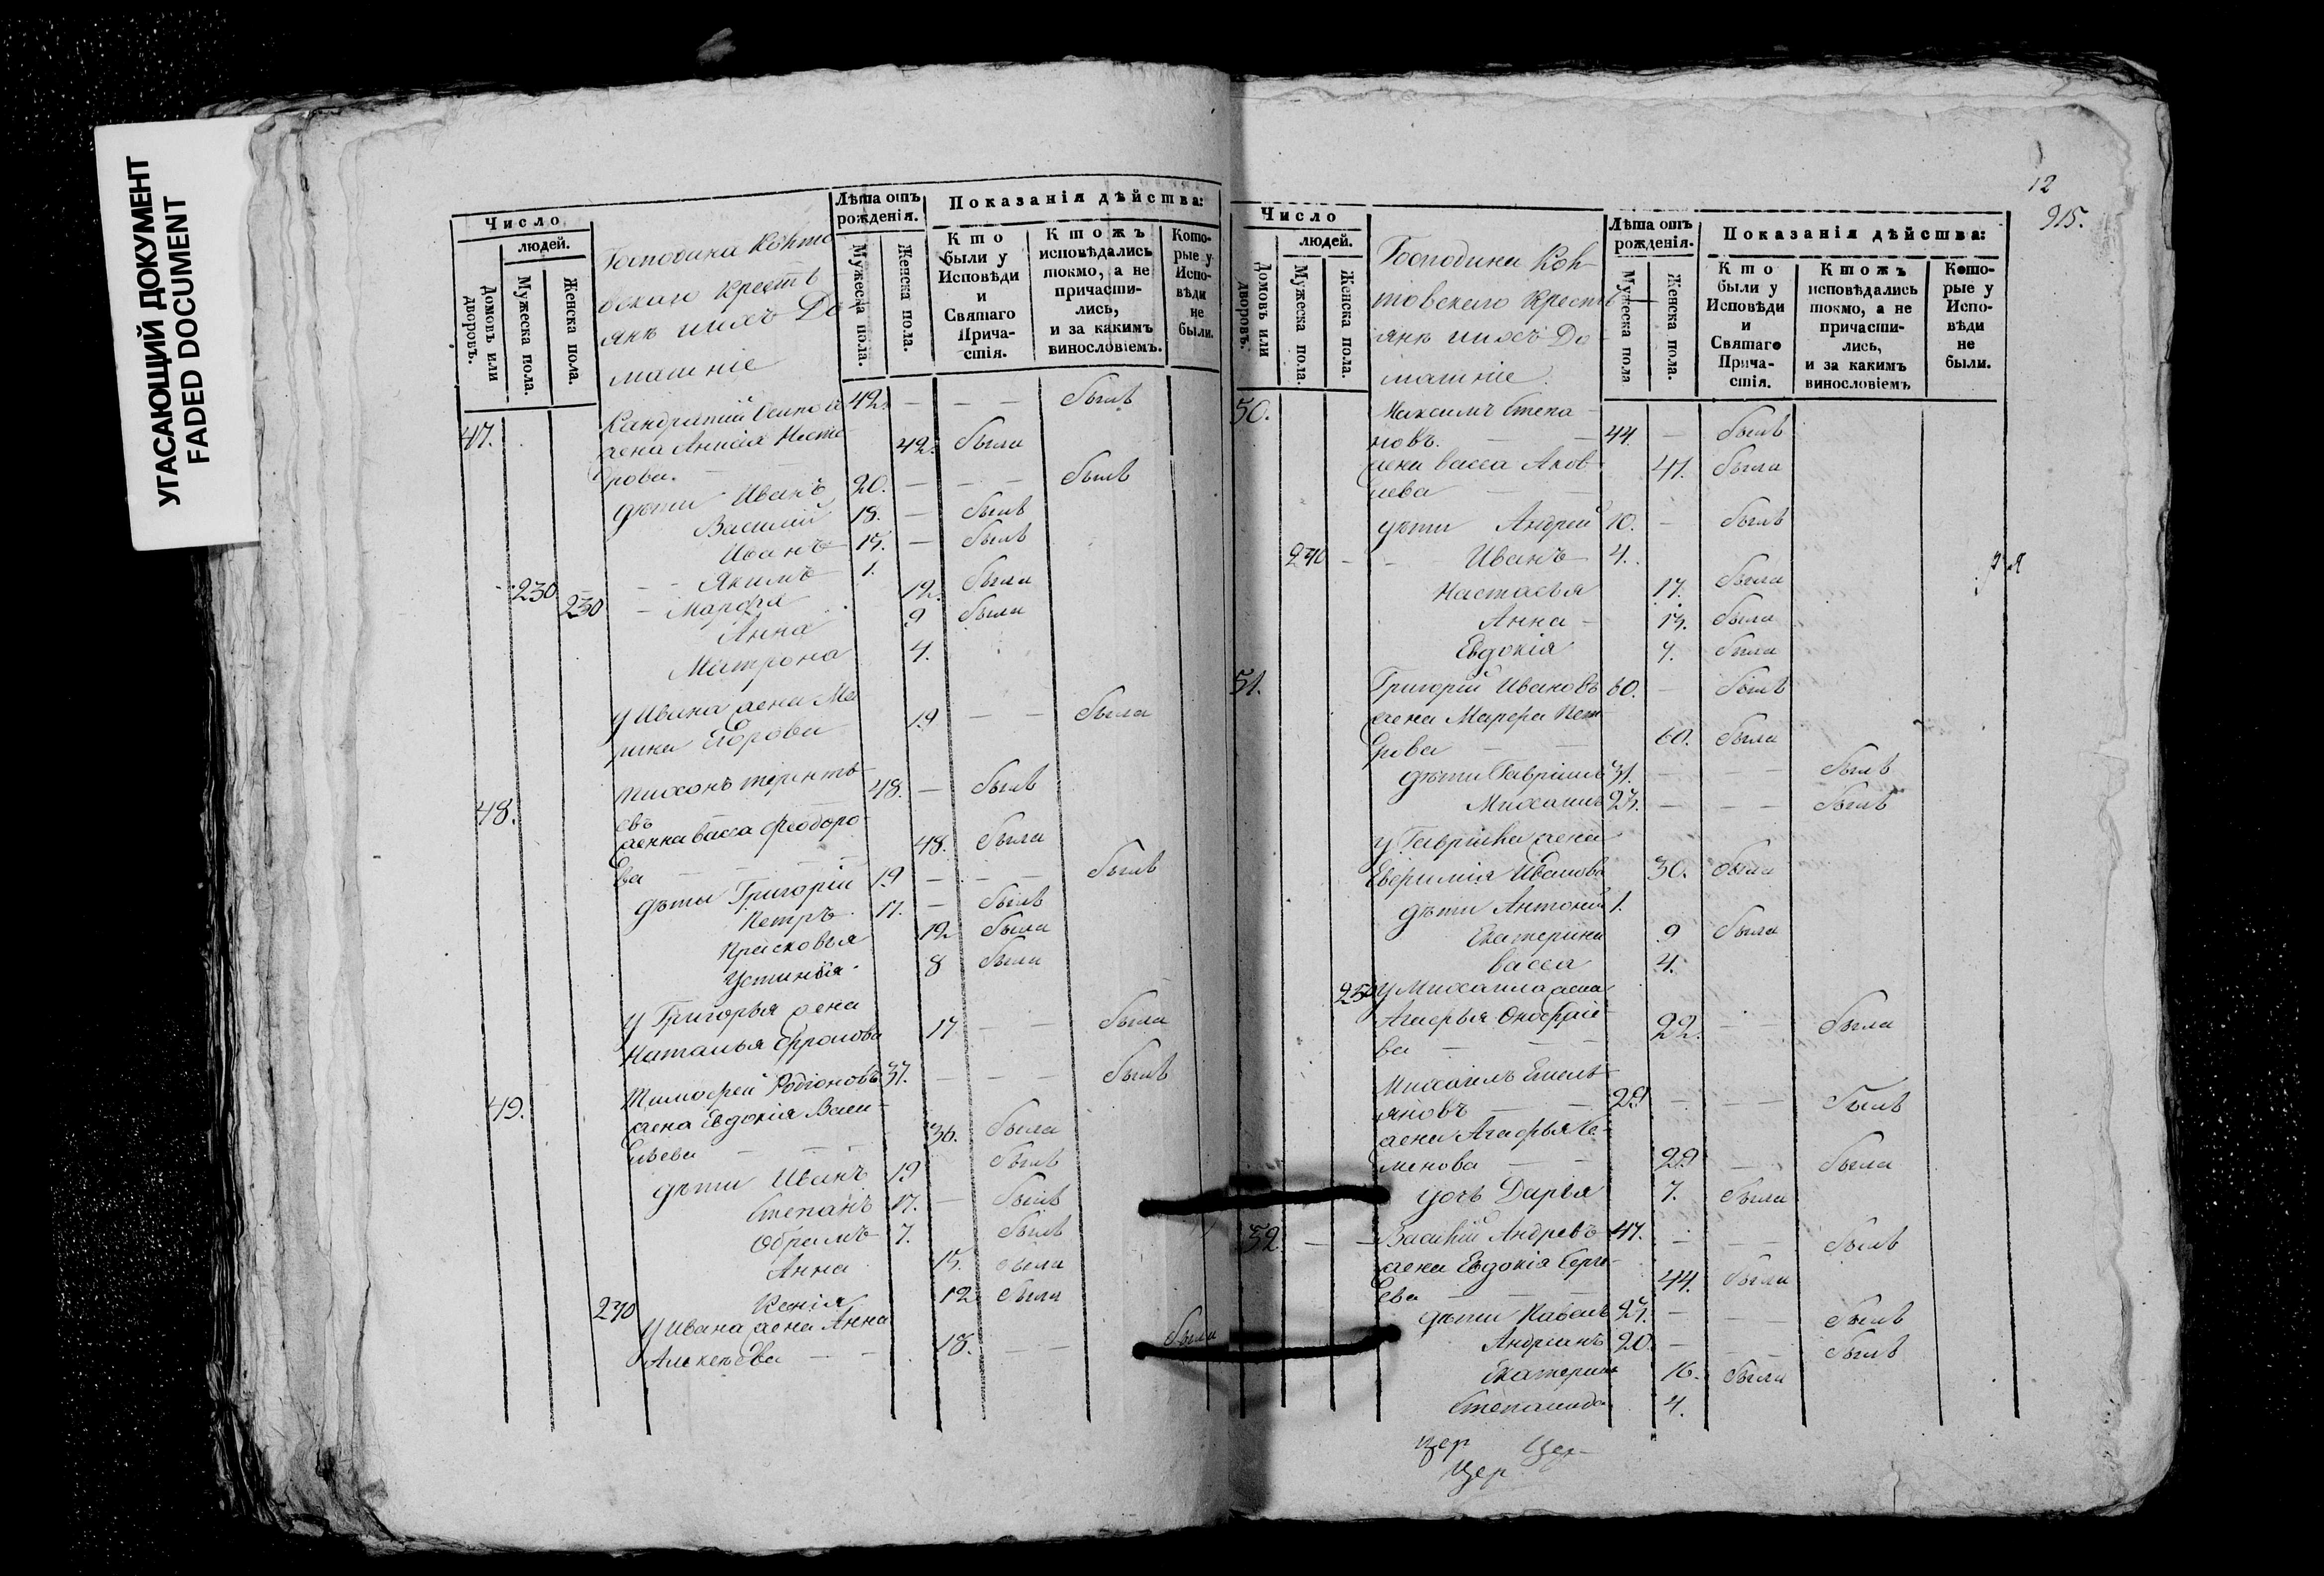 УГАСАЮЩИЙ ДОКУМЕНТ
FADED DOCUMENT
Число
людей.
Домовъ или дворовъ.
Мужеска пола.
Женска пола.
Лѣта отъ рожденія.
Мужеска пола.
Женска пола.
Показанія дѣйства:
Кто были у Исповѣди и Святаго Причастія.
Ктожъ исповѣдались токмо, а не причастились, и за какимъ винословіемъ.
Которые у Исповѣди не были.
Господина
скаго крестъ
янъ ихъ До
машніе
47. Кандратий 42. — — — былъ
жена Нисто 42. была
рова.
дѣти Иванъ 20. — — — былъ
Василий 18. — былъ
Иванъ 15. — былъ
230 Якимъ 1.
230 Марфа 12. былa
Анна 9 былa
Матрона 4.
У Ивана жена Ма
рина Егорова 19 — — былa
48. Тихонъ Терентъ
евъ 48. — былъ
женна васса Феодоро
ва 48. былa
дѣти Григорій 19 — — — былъ
Петръ 17. — былъ
Прасковья 12 былa
Устинья 8 былa
У Григорья жена
Наталья 17 — — былa
49. Тимофей Родіоновъ 37. — — — былъ
жена Евдокія Васи
льева 36. былa
дѣти Иванъ 19 былъ
Степанъ 17. — былъ
Обрамъ 7. былъ
Анна 15. былa
Ксенія 12 былa
240 У Ивана жена Анна
Алексѣева 18. — — былa
12
915.
Число
людей.
Домовъ или дворовъ.
Мужеска пола.
Женска пола.
Лѣта отъ рожденія.
Мужеска пола
Женска пола.
Показанія дѣйства:
Кто были у Исповѣди и Святаго Причастія.
Ктожъ исповѣдались токмо, а не причастились, и за какимъ винословіемъ
Которые у Исповѣди не были.
Господина Кох
товскаго крестъ
янъ ихъ До
машніе.
50. Максимъ Степа
новъ. 44 — былъ
жена васса Яков
лева 41. былa
дѣти Андрей 10. — былъ
240 Иванъ 4.
Настасья 17. былa
Анна 15. былa
Евдокія 9. былa
51. Григорій Ивановъ 60. — былъ
жена Марфа Пет
рова 60. былa
дѣти Гавріилъ 31. — — — былъ
Михаилъ 25. — — — былъ
У Гаврила жена
Евфимія Иванова 30. былa
дѣти Антоній 1.
Екатерина 9 былa
васса 4.
250 У Михаила жена
Агафья
ва 22. — — былa
Михаилъ Емель
яновъ 29 — — — былъ
жена Агафья Се
менова 29 — былa
дочь Дарья 7. былa
52. Василій Андревъ 47. — — былъ
жена Евдокія Серге
ева 44. былa
дѣти Павелъ 25. — — былъ
Андріанъ 20. — — былъ
Екатерина 16. былa
Степанида 4.
цер цер
цер